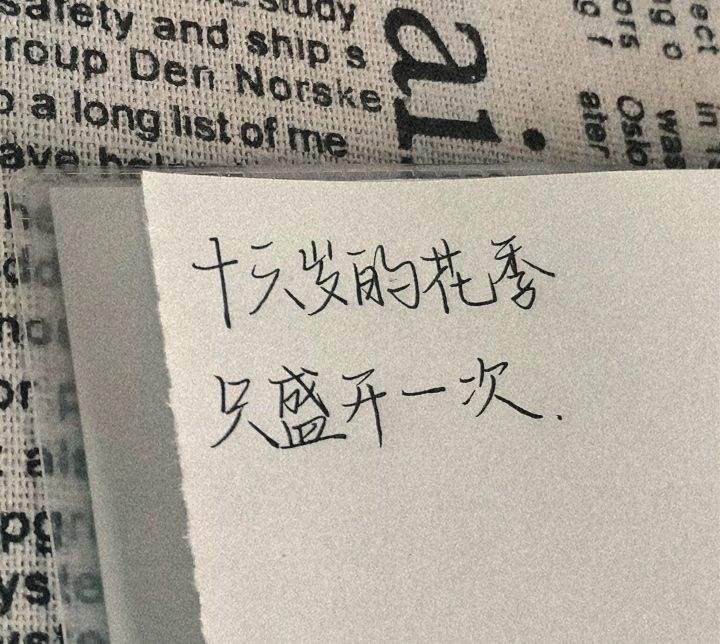 study
safety and ship s
roup Den Norske
a long list of me
ai.
ect
g o
ors
g f
in
was
Oslo
ater
十六岁的花季
只盛开一次.